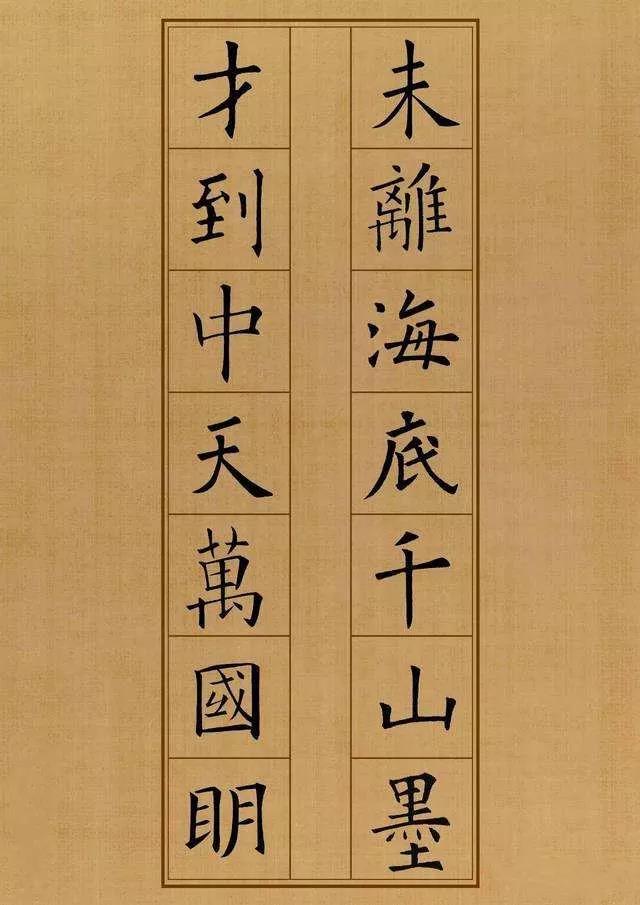 未離海底千山墨
才到中天萬國明